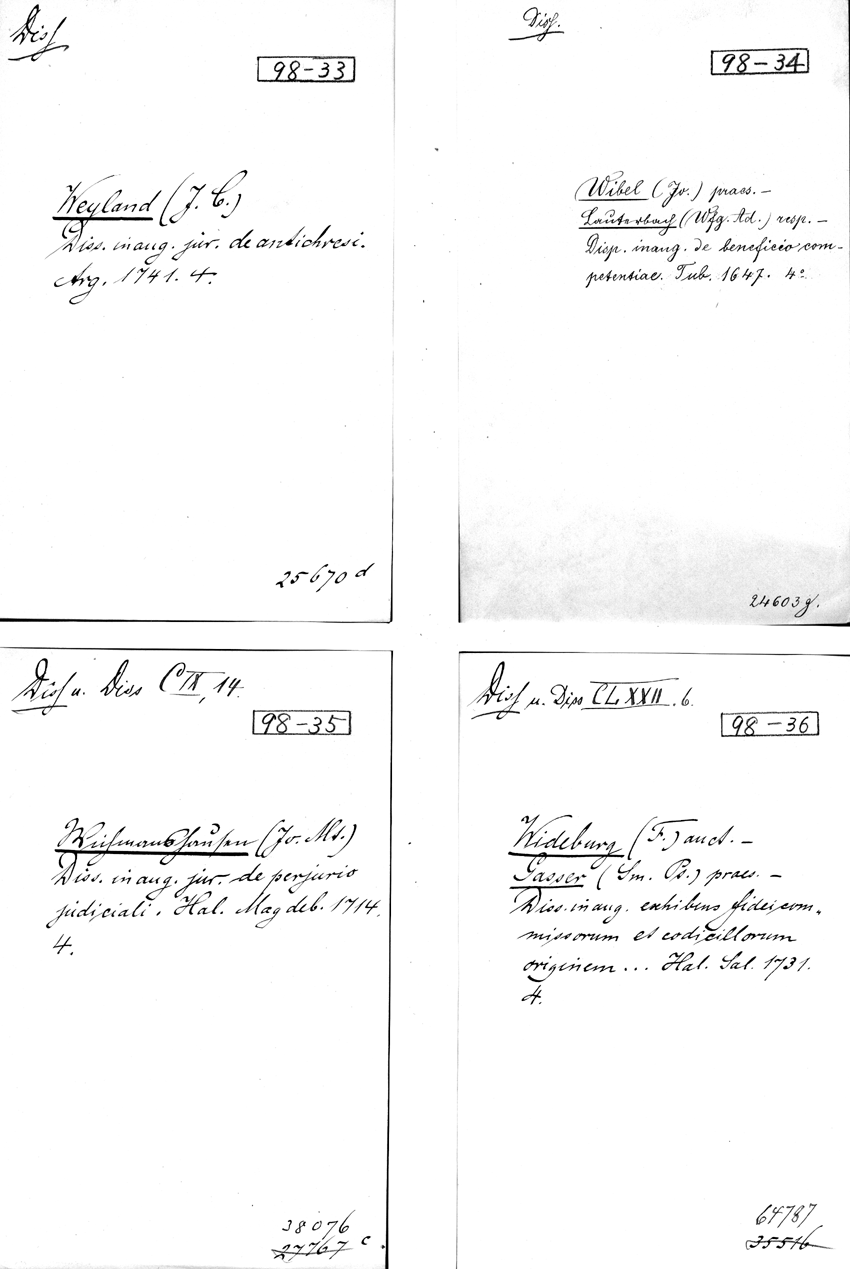 Diss
98-33
Weyland (J. C.)
Diss. inaug. jur. de antichresi.
Arg. 1741. 4.
25670 d
Diss.
98-34
Wibel (Jo.) praes. —
Lauterbach (Wfg. Ad.) resp. —
Disp. inaug. de beneficio com-
petentiae. Tub. 1647. 4°
24603 g.
Diss u. Diss CIX, 14.
98-35
Wichmanshausen (Jo. Mt.)
Diss. inaug. jur. de perjurio
judiciali. Hal. Magdeb. 1714.
4.
38076
27767 c.
Diss u. Diss CLXXII. 6.
98-36
Wideburg (F.) auct. —
Gasser (Sm. Ps.) praes. —
Diss. inaug. exhibens fideicom-
missorum et codicillorum
originem ... Hal. Sal. 1731.
4.
64787
35516